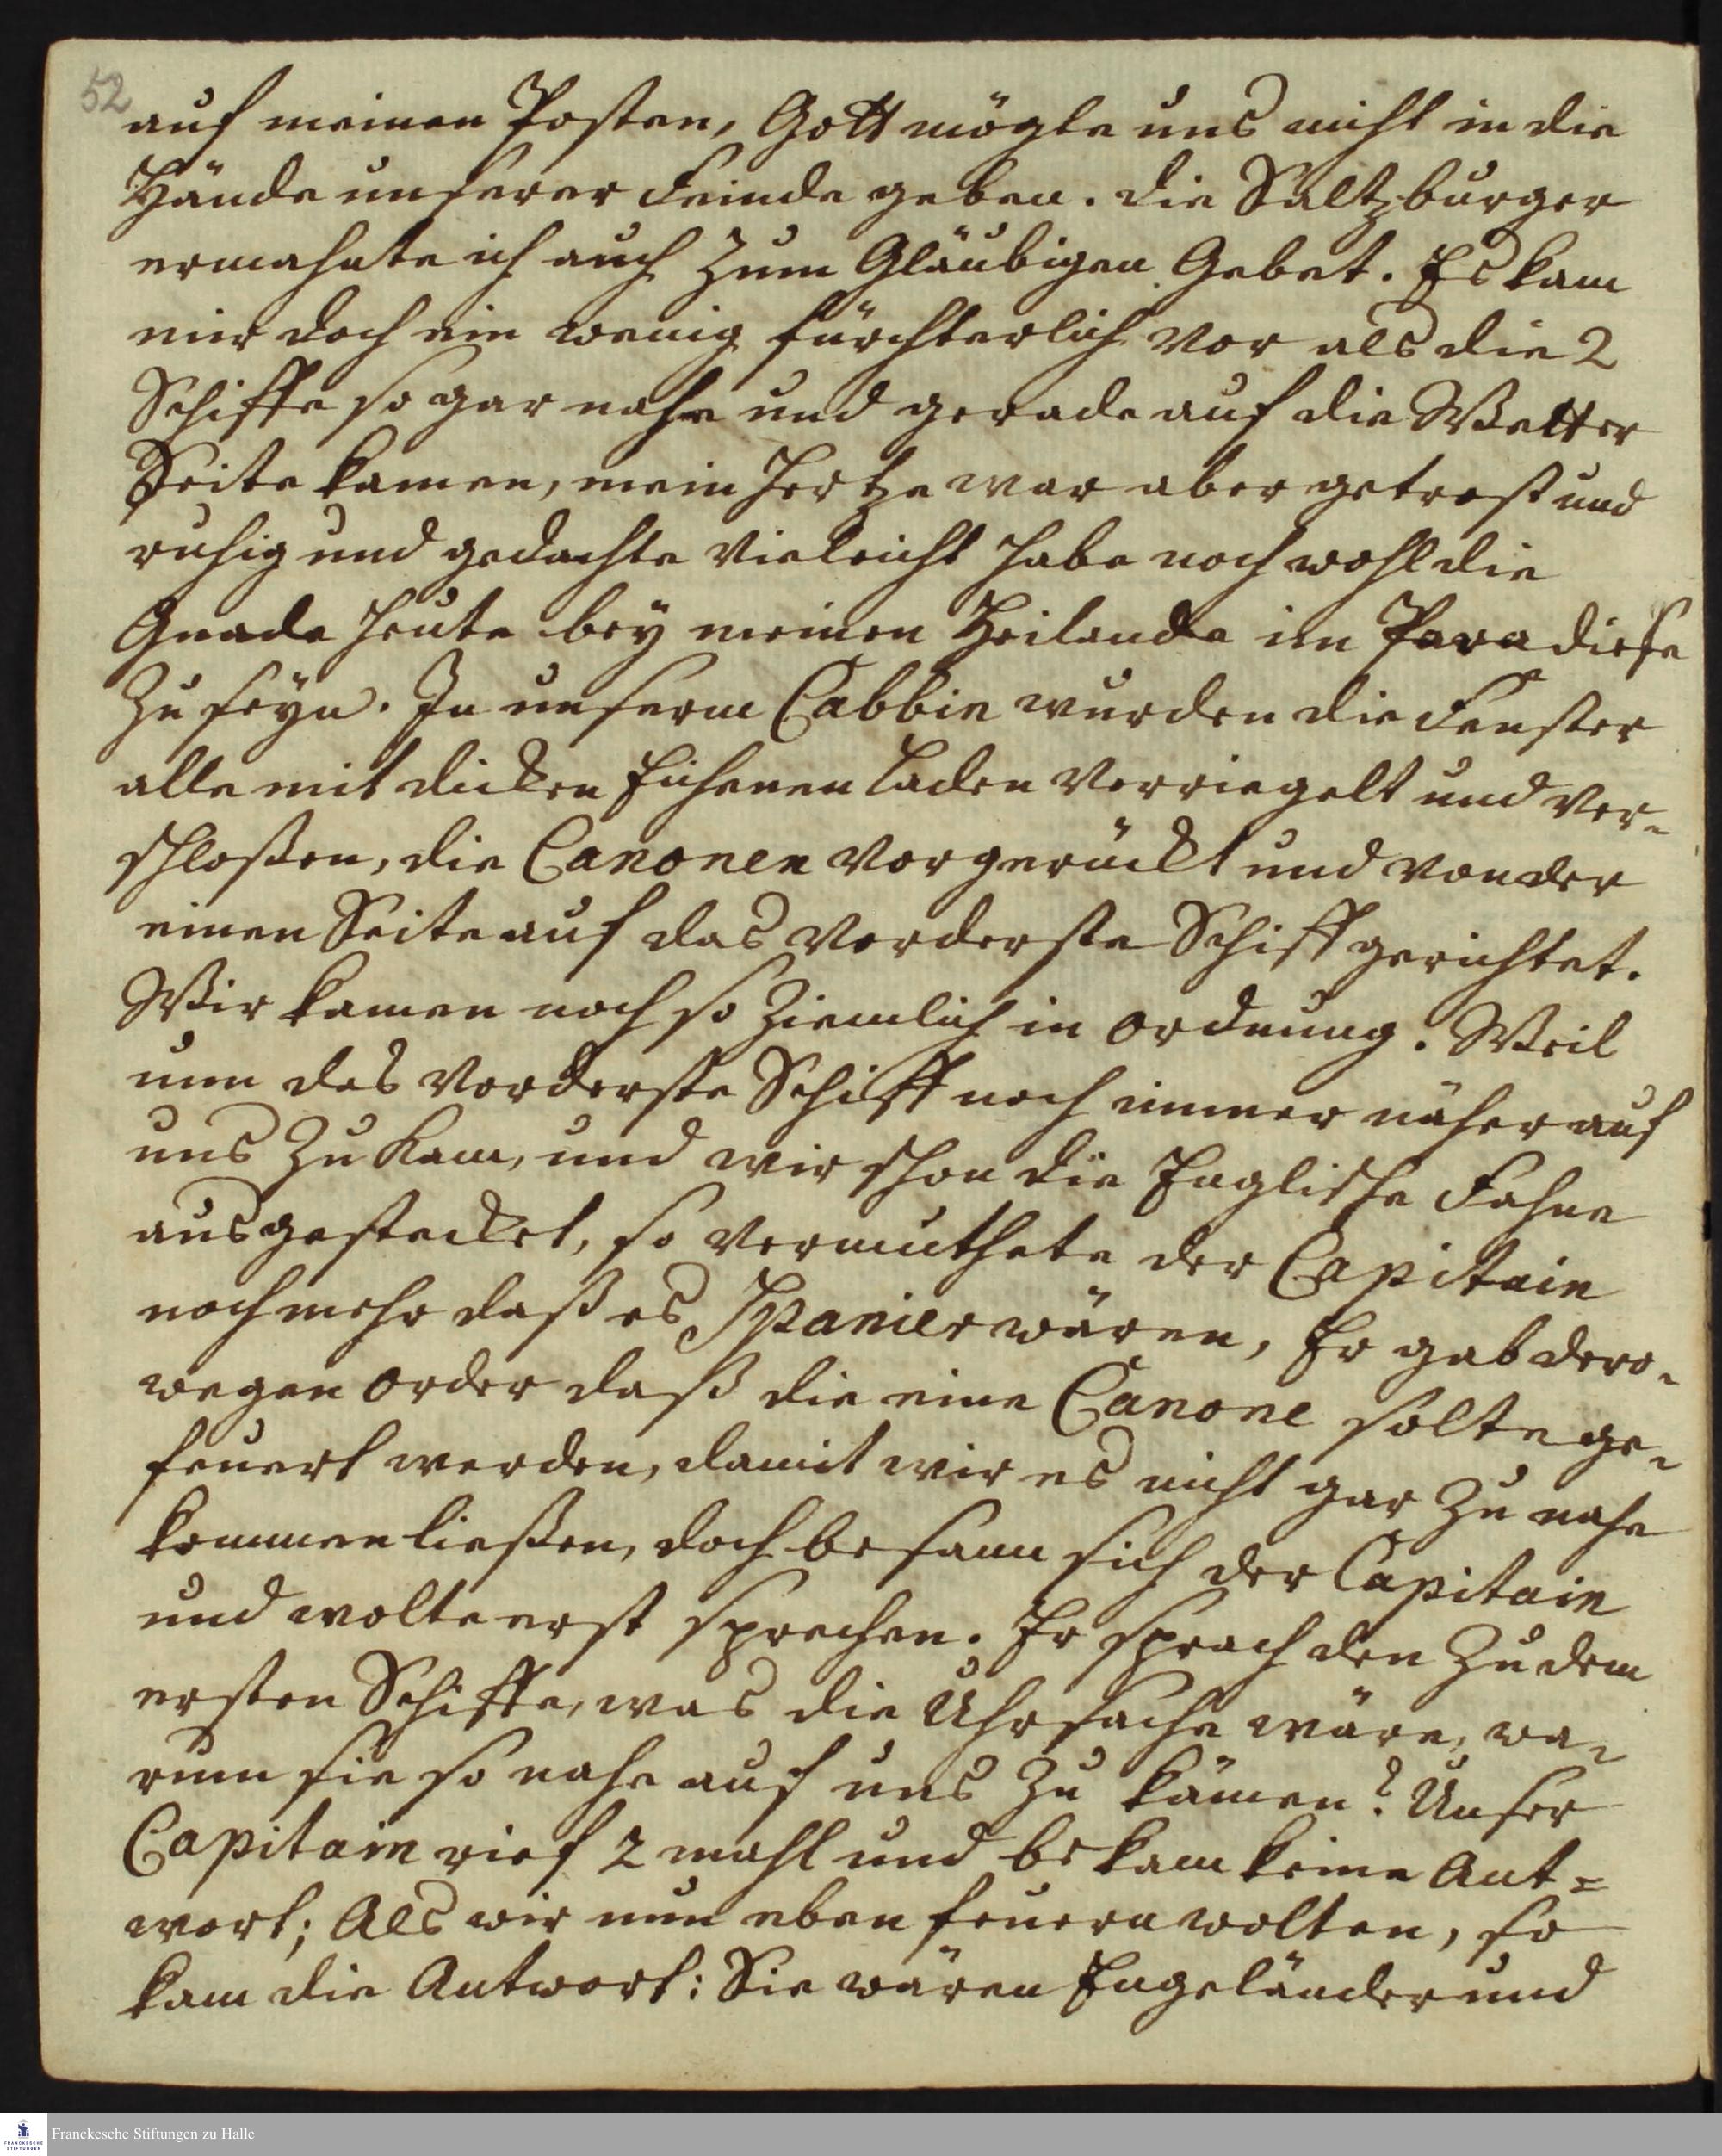 52
auf meinen Posten, Gott mögte uns nicht in die
Hände unserer Feinde geben. Die Saltzburger
ermahnte ich auch zum Gläubigen Gebet. Es kam
mir doch ein wenig fürchterlich vor als die 2
Schiffe so gar nahe und gerade auf die Wetter
Seite kamen, mein Hertze war aber getrost und
ruhig und gedachte vieleicht habe noch wohl die
Gnade heute bey meinen Heilande im Paradiese
zu seyn. In unserm Cabbin wurden die Fenster
alle mit dicken Eichenen Laden verriegelt und ver-
schloßen, die Canonen vorgerückt und von der
einen Seite auf das vorderste Schiff gerichtet.
Wir kamen noch so ziemlich in Ordnung. Weil
nun das vorderste Schiff noch immer näher auf
uns zu kam, und wir schon die Englische Fahne
ausgestecket, so vermuthete der Capitain
noch mehr daß es Spanier wären, Er gab dero-
wegen Order daß die eine Canone solte ge-
feuert werden, damit wir es nicht gar zu nahe
kommen ließen, doch besann sich der Capitain
und wolte erst sprechen. Er sprach den zu dem
ersten Schiffe, was die Uhrsache wäre, wa-
rum sie so nahe auf uns zu kämen? Unser
Capitain rief 2 mahl und bekam keine Ant=
wort; Als wir nun eben feuern wolten, so
kam die Antwort: Sie wären Engeländer und
FRANCKESCHE
STIFTUNGEN
Franckesche Stiftungen zu Halle